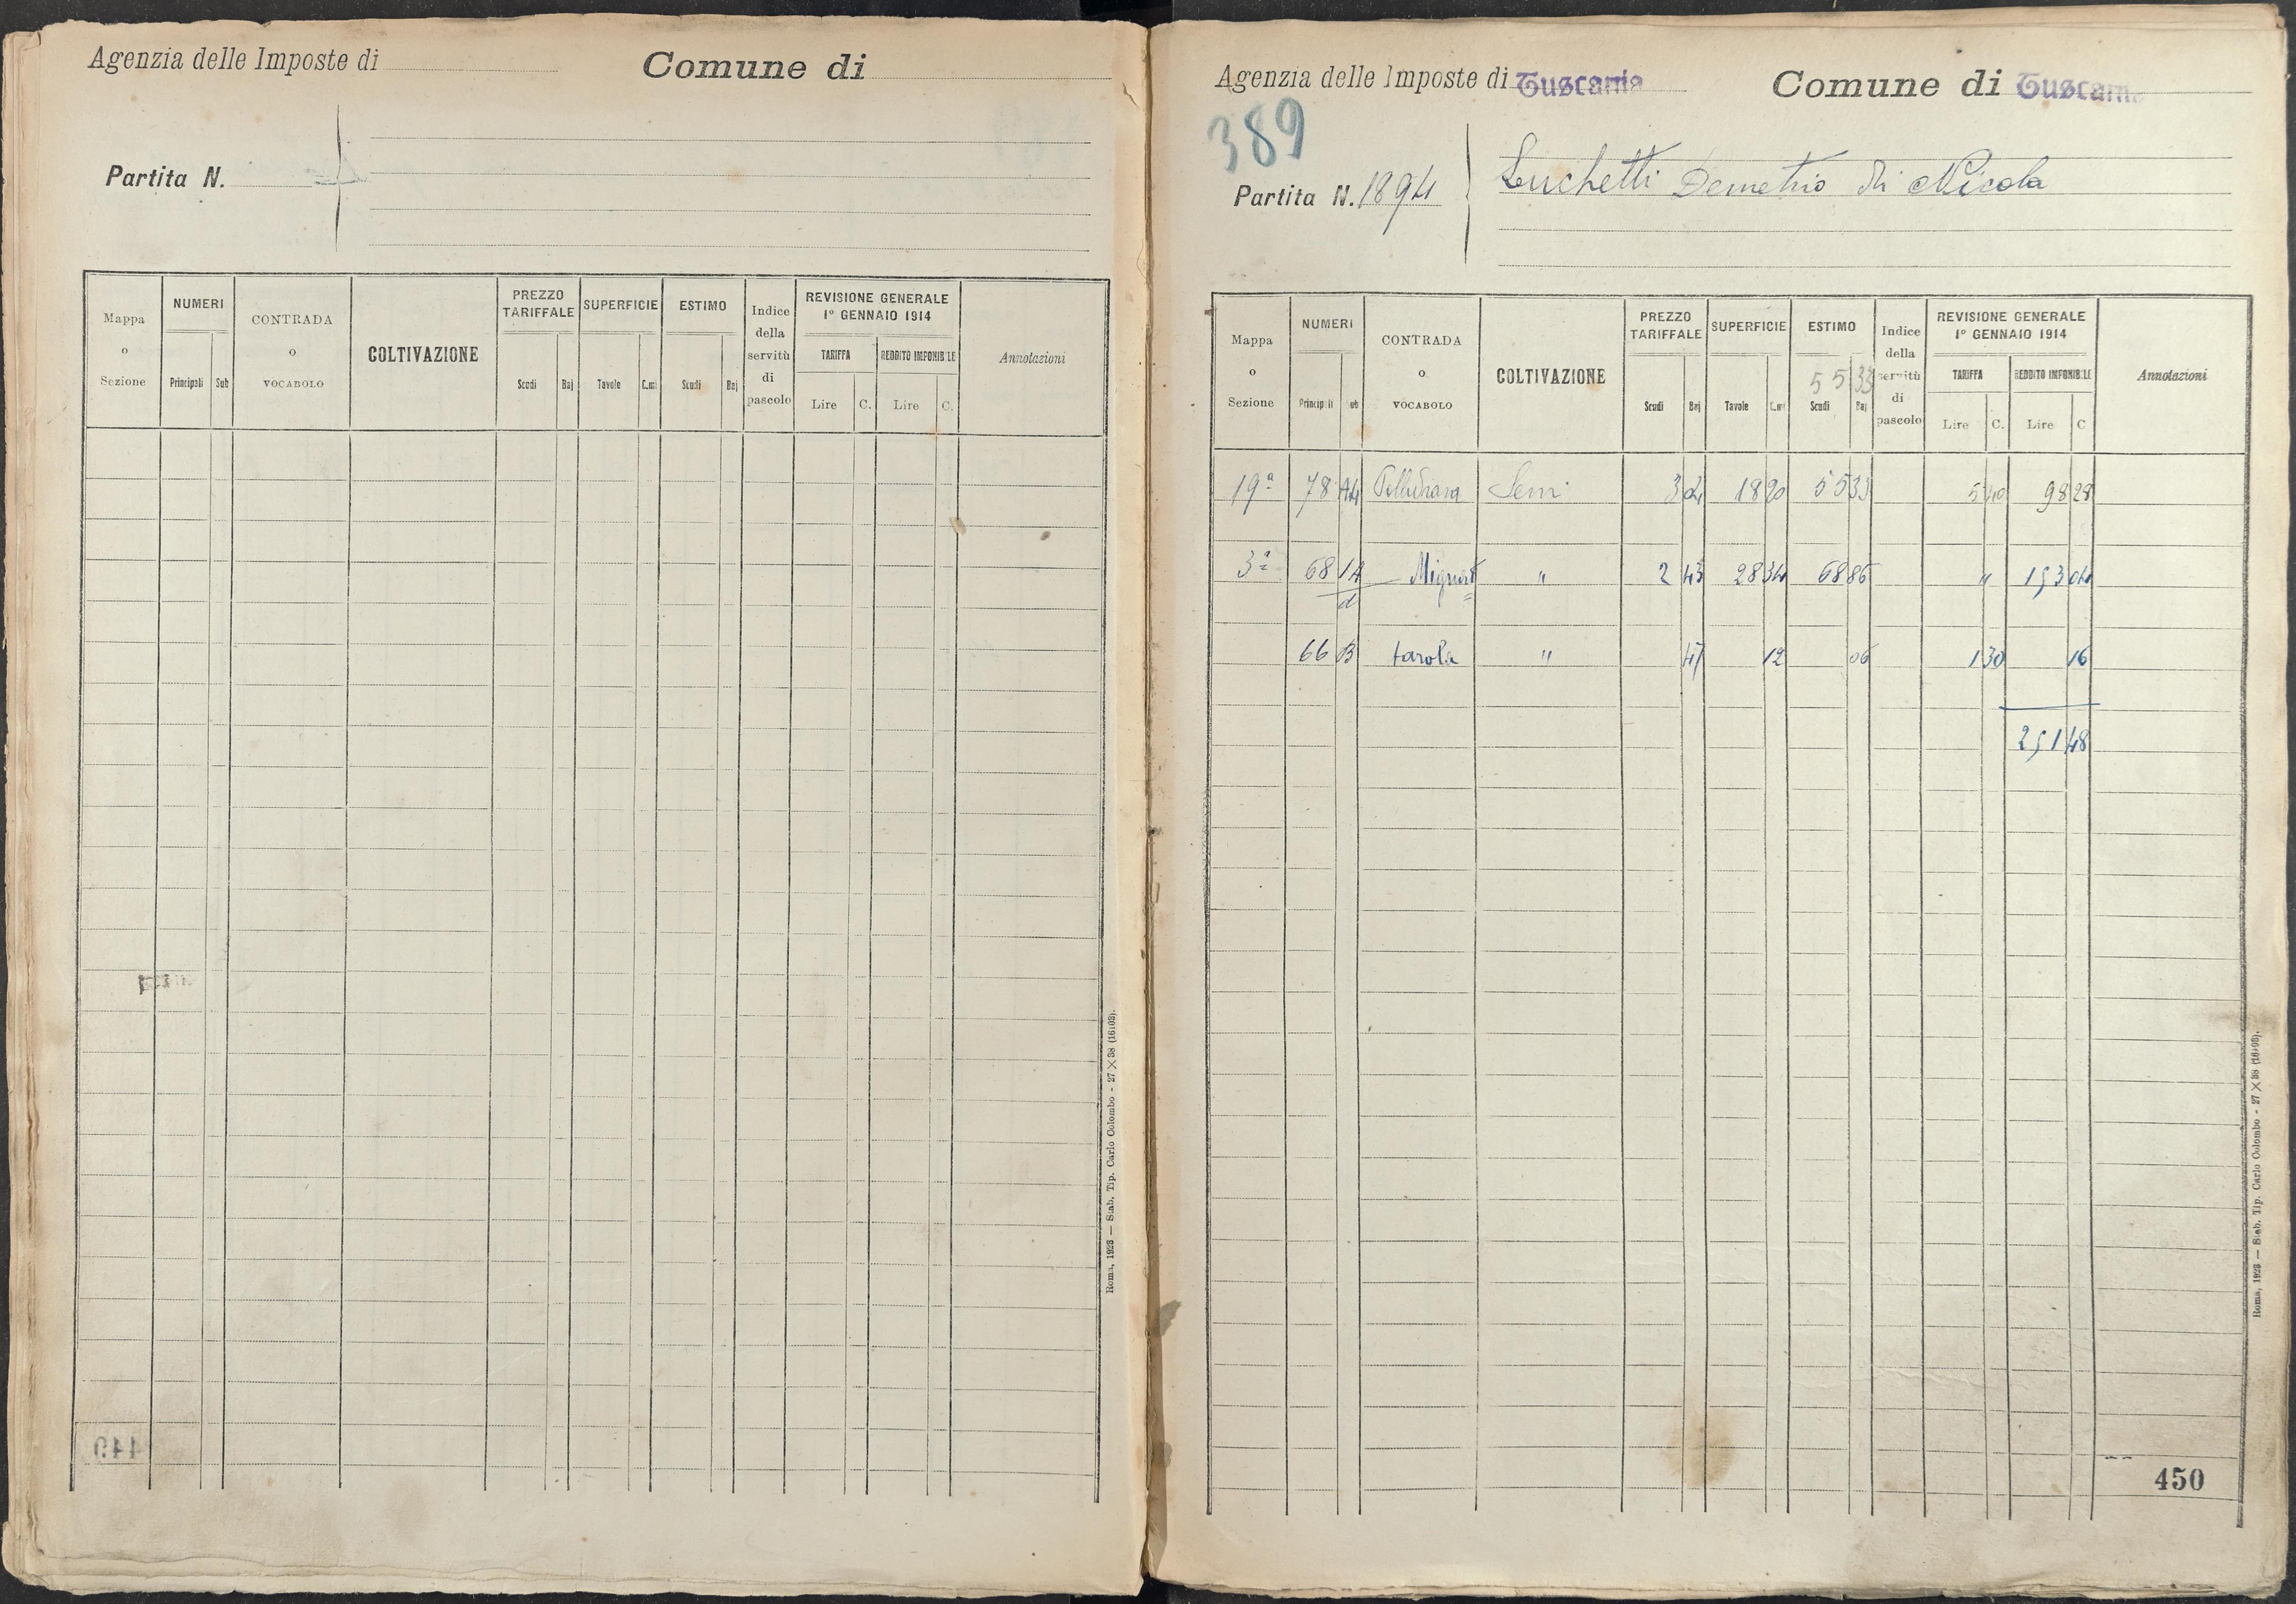 Agenzia delle Imposte di
Comune di
Partita N.
Mappa o Sezione
NUMERI
Principali Sub
CONTRADA o VOCABOLO
COLTIVAZIONE
PREZZO TARIFFALE
Scudi Baj
SUPERFICIE
Tavole C.mi
ESTIMO
Scudi Baj
Indice della servitù di pascolo
REVISIONE GENERALE 1º GENNAIO 1914
TARIFFA
Lire C.
REDDITO IMPONIBILE
Lire C.
Annotazioni
Roma, 1923 — Stab. Tip. Carlo Colombo - 27 × 38 (16103).
449
Agenzia delle Imposte di Tuscania
Comune di Tuscania
389
Partita N. 1894
Luchetti Demetrio di Nicola
Mappa o Sezione
NUMERI
Principali Sub
CONTRADA o VOCABOLO
COLTIVAZIONE
PREZZO TARIFFALE
Scudi Baj
SUPERFICIE
Tavole C.mi
ESTIMO
55 33
Scudi Baj
Indice della servitù di pascolo
REVISIONE GENERALE 1º GENNAIO 1914
TARIFFA
Lire C.
REDDITO IMPONIBILE
Lire C
Annotazioni
19ª 78 Sem 3 04 18 20 55 33 5 40 98 28
3ª 68 " 2 43 28 34 68 86 " 153 04
66 B tarola " 47 12 06 1 30 16
251 48
Roma, 1923 — Stab. Tip. Carlo Colombo - 27 × 38 (16103).
450